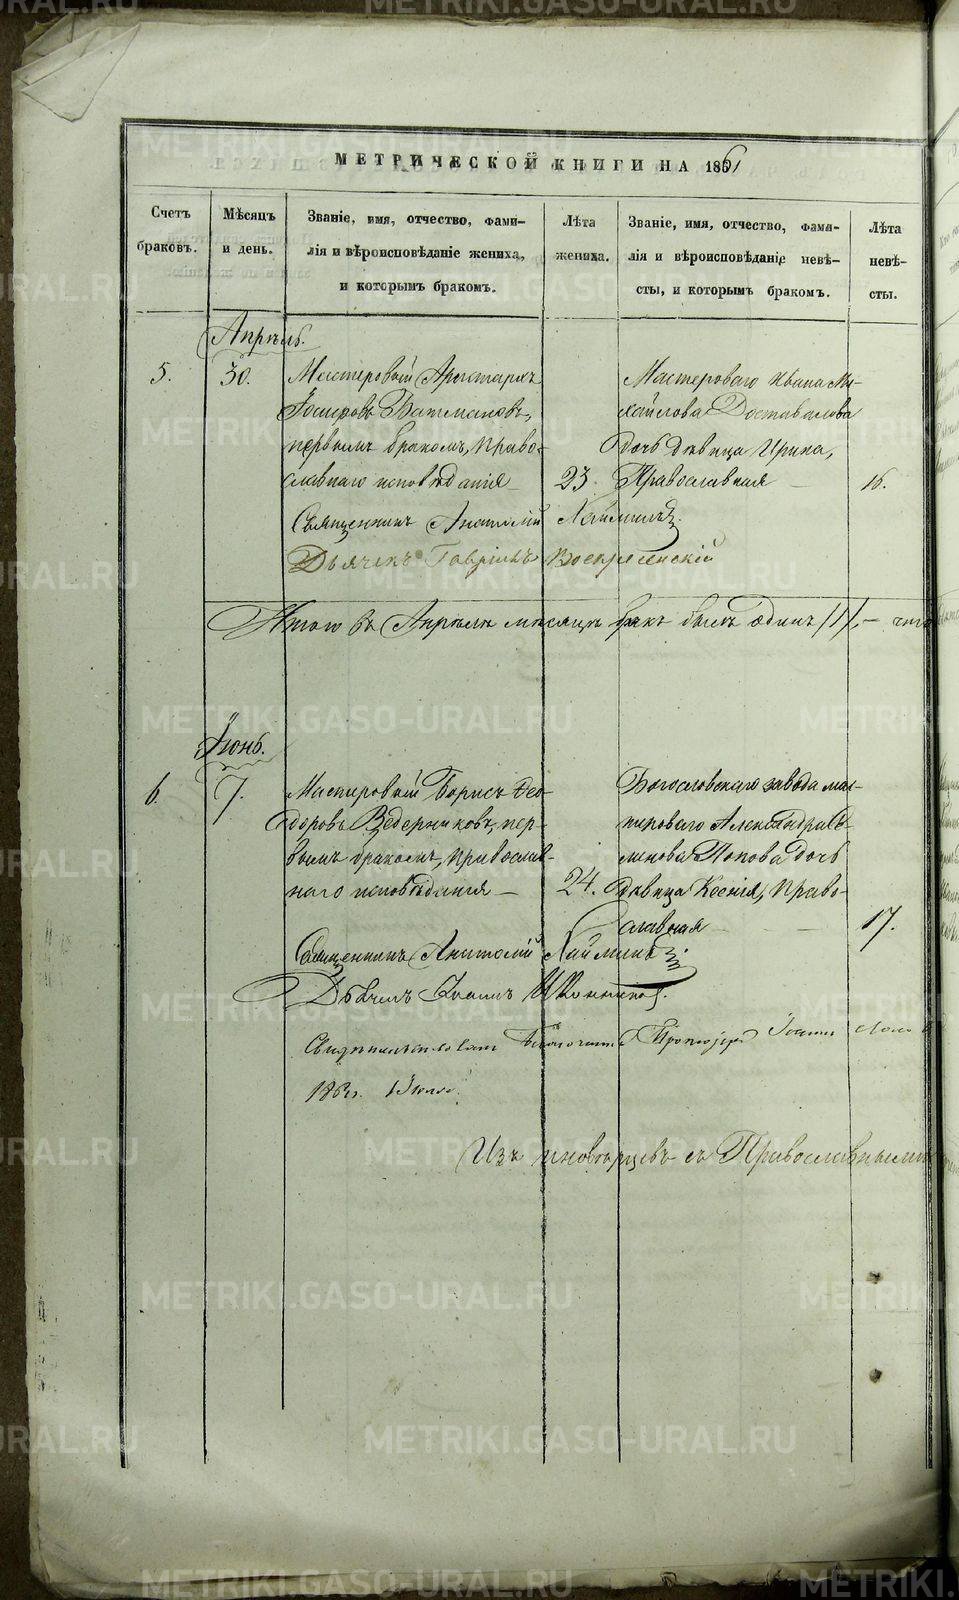 МЕТРИЧЕСКОЙ КНИГИ НА 1861
Счетъ браковъ.
Мѣсяцъ и день.
Званіе, имя, отчество, фами-
лія и вѣроисповѣданіе жениха,
и которымъ бракомъ.
Лѣта жениха.
Званіе, имя, отчество, фами-
лія и вѣроисповѣданіе невѣ-
сты, и которымъ бракомъ.
Лѣта невѣ-
сты.
Апрѣль.
5.
30.
Мастеровый Аристархъ
Іосифовъ Ватмановъ,
первымъ бракомъ, право-
славнаго исповѣданія
23.
Мастероваго Ивана Ми-
хайлова Доставалова
дочь дѣвица Ирина,
Православная
16.
Священникъ Анатолій Хаймикъ
Дьячекъ Гавріилъ Воскресенскій
Итого въ Апрѣлѣ мѣсяцѣ бракъ былъ одинъ /1/. —
Іюнь.
6.
7.
Мастеровый Борисъ Ѳео-
доровъ Ведерниковъ, пер-
вымъ бракомъ, православ-
наго исповѣданія
24.
Богословскаго завода мас-
тероваго Александра Се-
менова Попова дочь
дѣвица Ксенія, Право-
славная
17.
Священникъ Анатолій Хаймикъ
Дьячекъ Іоаннъ
Свидѣтельствовалъ Благочинный Протоіерей Іоаннъ
Іюля
Изъ иновѣрцевъ съ Православными
METRIKI.GASO-URAL.RU